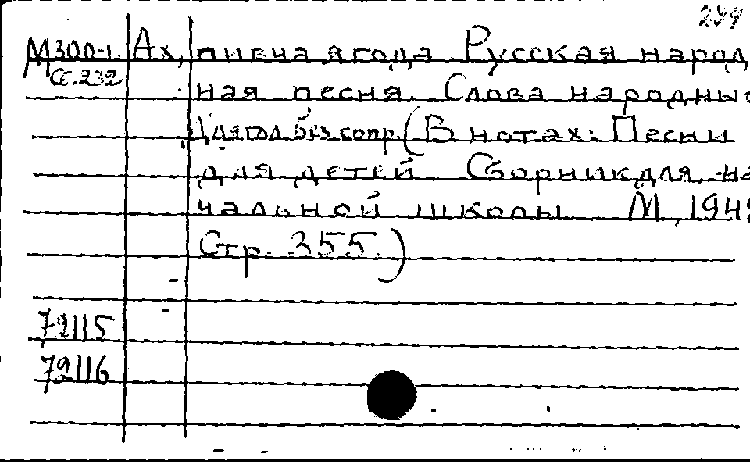 299
М300-1 Ах, пивна ягода Русская народ
Сб.232 ная песня. Слова народны
Для гол. без сопр. (В нотах: Песни
для детей Сборник для на
чальной школы М, 194
Стр. 355.)
72115
72116